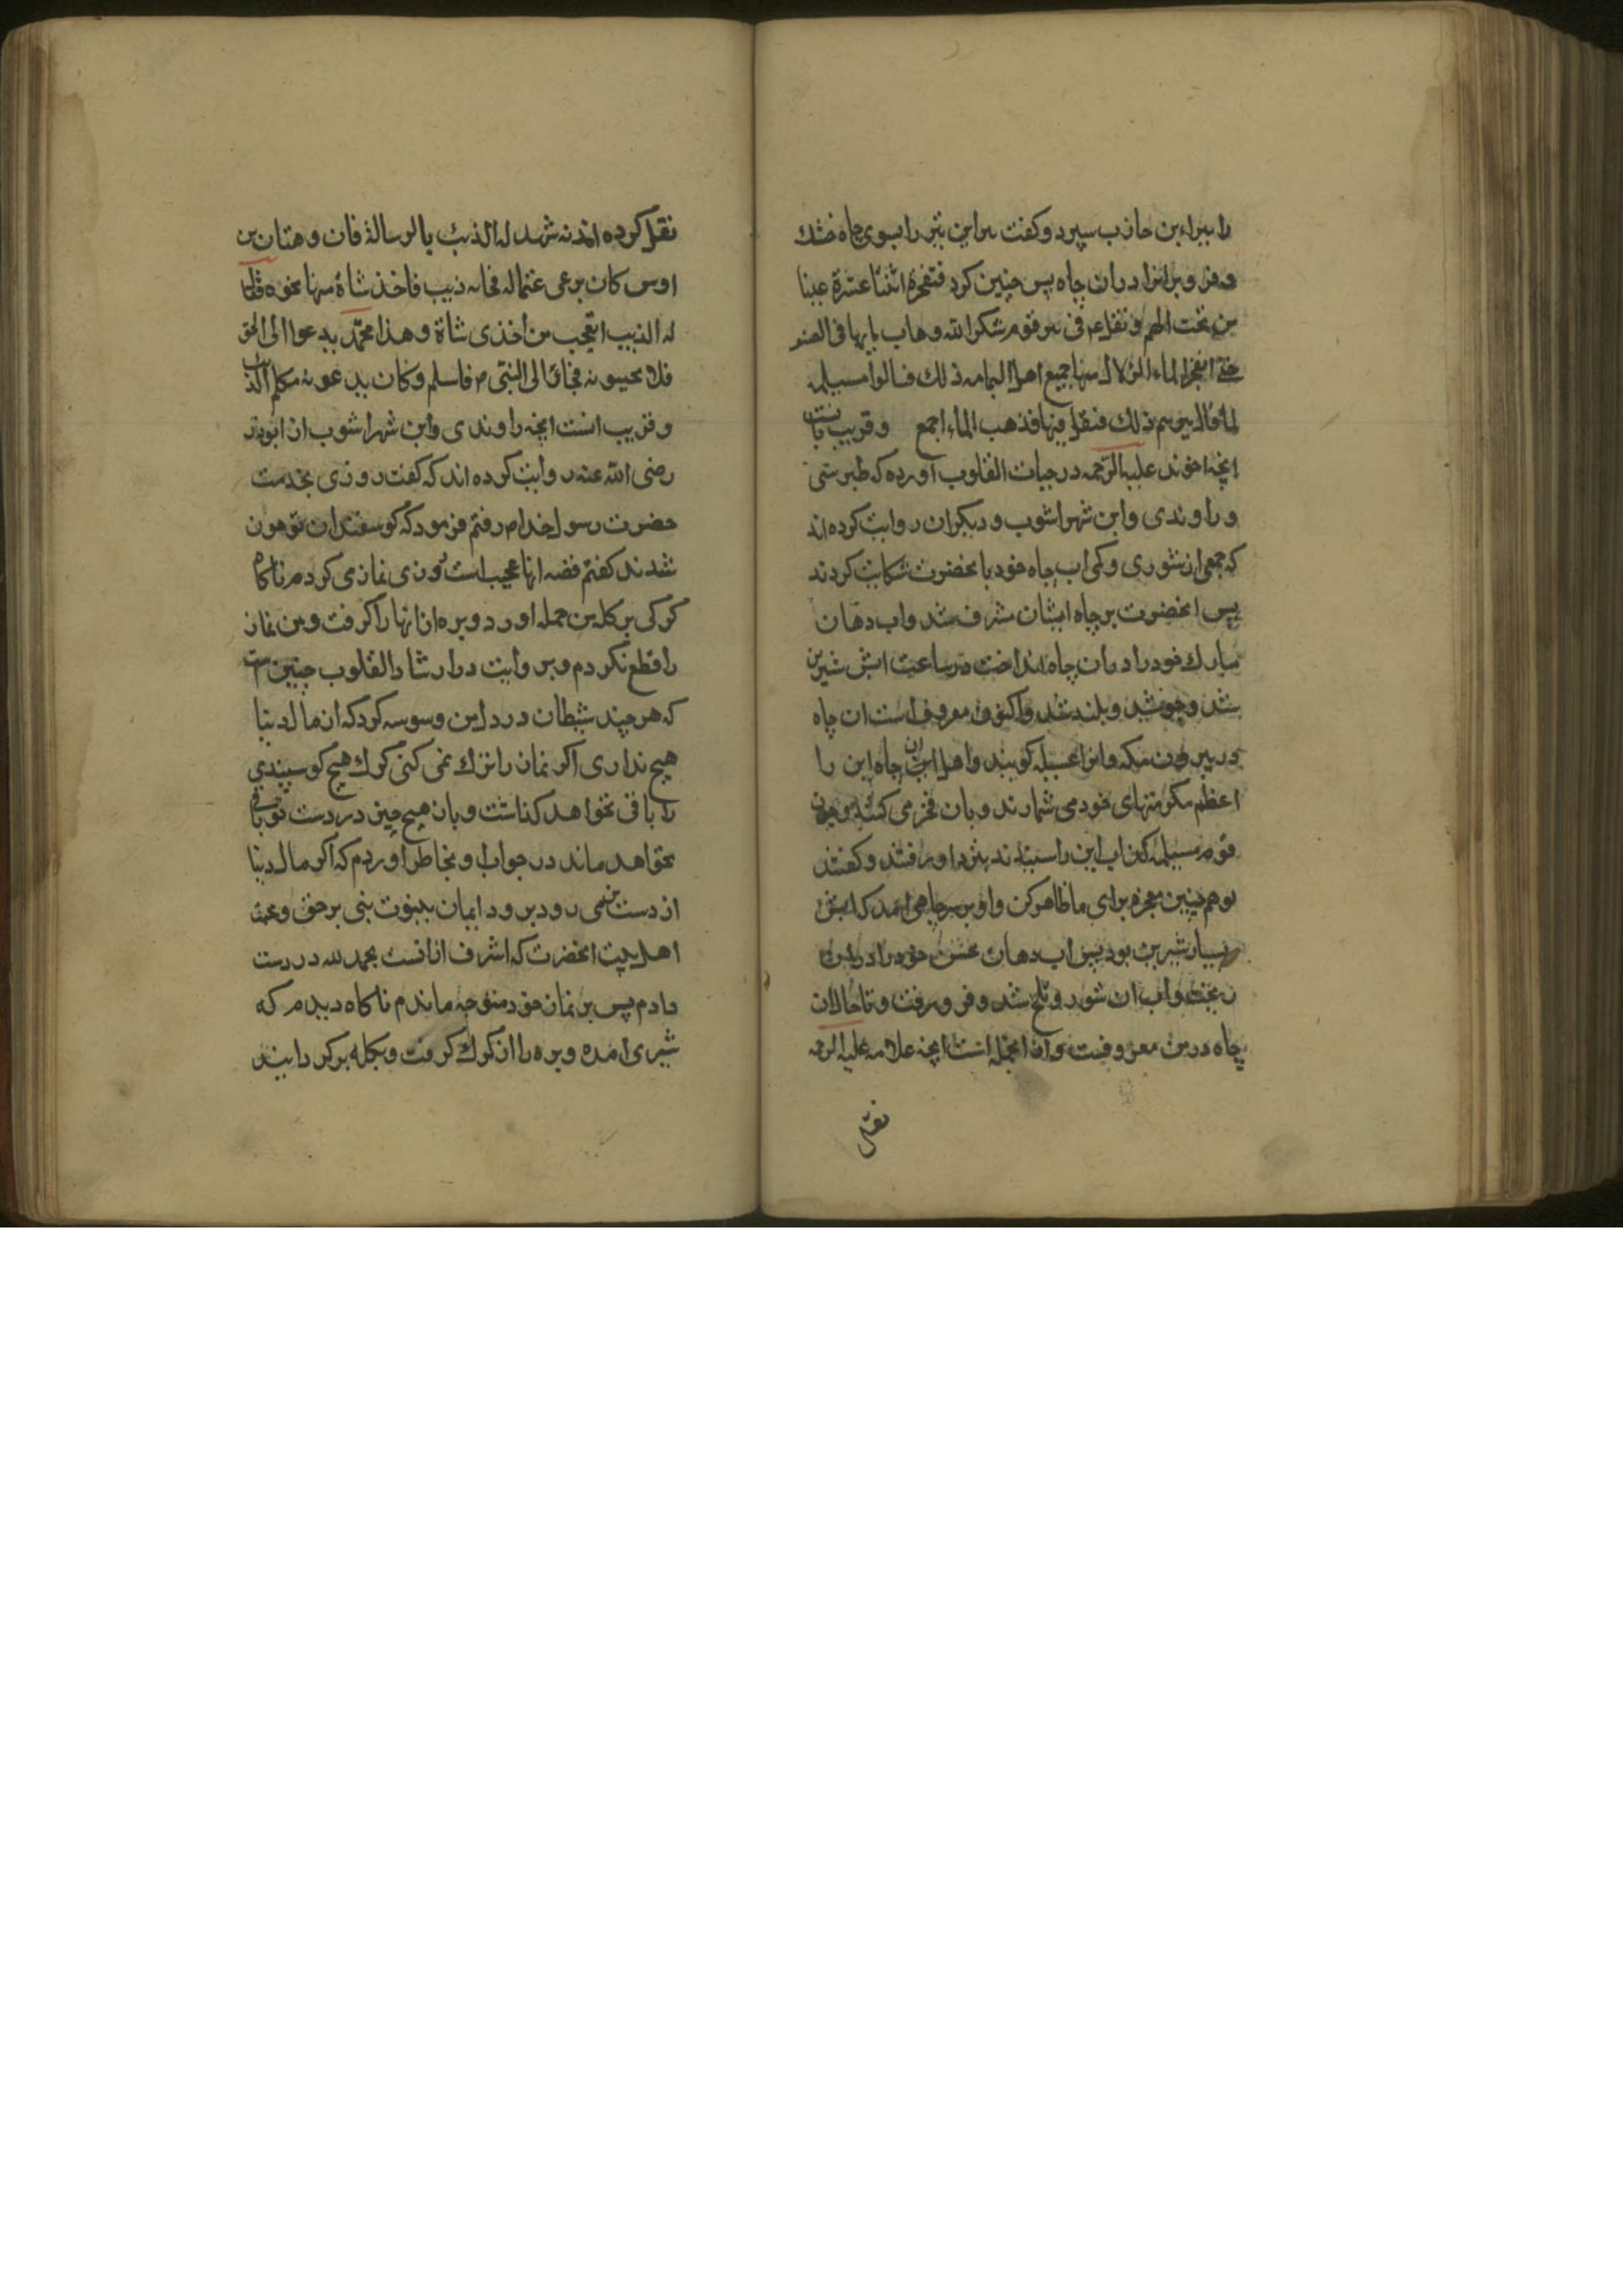 را ببراء بن عازب سپرد و كفت ببر این تیر را بسوی چاه خشك
و فرو بر انرا دران چاه پس چنین كرد فتفجرة اثنتا عشرة عینا
من تحت السهم و تفل عم فی بئر قوم شكوا الله ذهاب مایها فی الصیف
حتی انفجر الماء الزلال منها جمیع اهل الیمامه ذلك فسالوا مسیلمه
لما قال بیوسهم ذلك فتفل فیها فذهب الماء اجمع و قریب باینست
انچه اخوند علیه الرحمه در حیات القلوب آورده كه طبرسی
و راوندی و ابن شهراشوب و دیكران روایت كرده اند
كه جمعی از شوری و كمی اب چاه خود بانحضرت شكایت كردند
پس انحضرت بر چاه ایشان مشرف شد و اب دهان
مبارك خود را دران چاه انداخت در ساعت ابش شیرین
شد و جوشید و بلند شد و اكنون معروف است ان چاه
در بیرون مكه و انرا عسیله كویند و اهل ان چاه این را
اعظم مكرمتهای خود می شمارند و بان فخر می كنند و چون
قوم مسیلمه كذاب این را شنیدند نزد او رفتند و كفتند
تو هم چنین معجزه برای ما ظاهر كن و او بر سر چاهی امد كه ابش
بسیار شیرین بود پس اب دهان نجس خود را در ان
ریخت و اب ان شور و تلخ شد و فرو رفت و تا حال ان
چاه در یمن معروفست و از انجمله است انچه علامه علیه الرحمه
نقل
نقل كرده اند نه شهد له الذئب بالرسالة فان وهبان بن
اوس كان یرعی غنما له فجاءه ذیب فاخذ شاة منها نحوه فقال
له الذیب اتعجب من اخذی شاة و هذا محمد یدعوا الی الحق
فلا تجیبونه فجاء الی النبی ص فاسلم و كان یدعونه مكلم الذئب
و قریب انست انچه راوندی و ابن شهراشوب از ابوذر
رضی الله عنه روایت كرده اند كه كفت روزی بخدمت
حضرت رسول خدا ص رفتم فرمود كه كوسفندان تو چون
شدند كفتم قصه انها عجیب است روزی نماز می كردم ناكاه
كركی بر كله من حمله اورد و بره از انها را كرفت و من نماز
را قطع نكردم و بروایت در ارشاد القلوب چنین است
كه هر چند شیطان در دل من وسوسه كرد كه از مال دنیا
هیچ نداری اكر نماز را ترك نمی كنی كرك هیچ كوسپندی
را باقی نخواهد كذاشت و بان هیچ چیز در دست تو باقی
نخواهد ماند در جواب او بخاطر اوردم كه اكر مال دنیا
از دست من می رود برود ایمان بنبوت نبی بر حق و محبت
اهل بیت انحضرت كه اشرف از انست بحمد لله در دست
دارم پس بر نماز خود متوجه ماندم ناكاه دیدم كه
شیری امده و بره را از كرك كرفت و بكله بركردانید